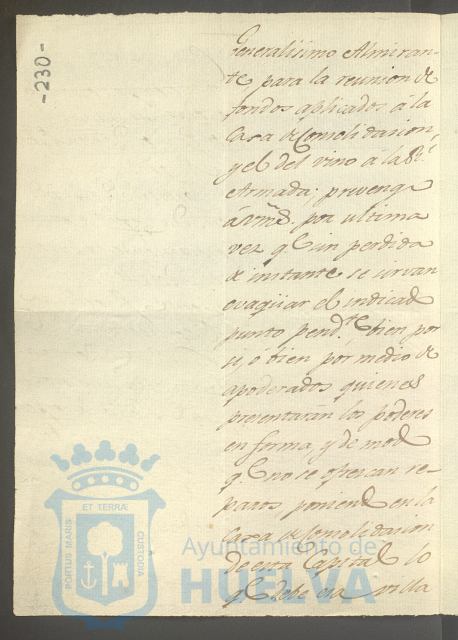 -230-
Generalisimo Almiran-
te, para la reunion de
fondos aplicados à la
Caxa de Consolidasion,
y el del vino à la Rl.
Armada; prevengo
à Vmd. por ultima
vez qe. sin perdida
de instante se sirvan
evaqüar el indicado
punto pendte. ô bien por
si, ó bien por medio de
apoderados quienes
presentaran los poderes
en forma, y de modo
qe. no se ofrescan re-
paros poniendo en la
Caxa de Consolidasion
de esta Capital lo
qe. debe esa villa
ET TERRÆ
PORTUS MARIS
CUSTODIA
Ayuntamiento de
HUELVA